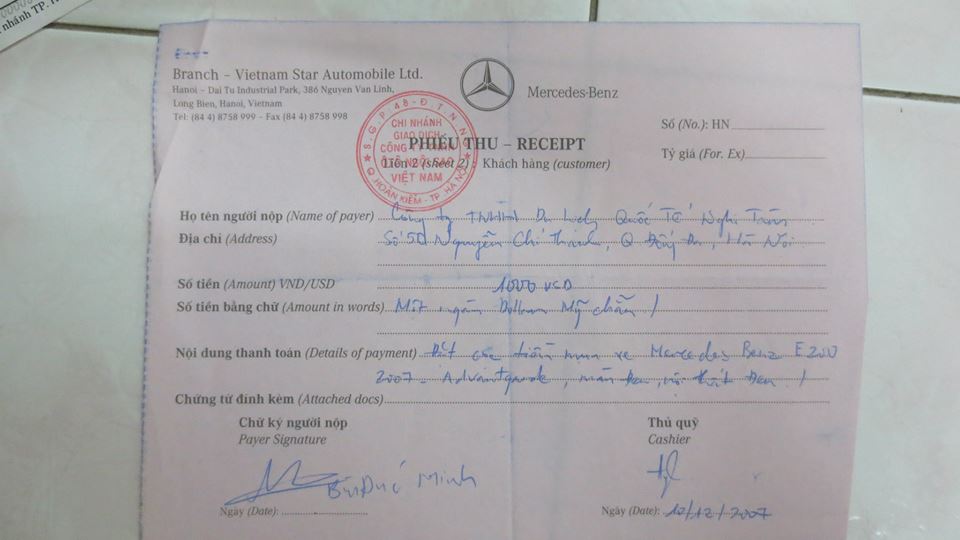 nhánh TP. H
Branch – Vietnam Star Automobile Ltd.
Hanoi – Dai Tu Industrial Park, 386 Nguyen Van Linh,
Long Bien, Hanoi, Vietnam
Tel: (84 4) 8758 999 – Fax (84 4) 8758 998
Mercedes-Benz
Số (No.): HN
Tỷ giá (For. Ex)
S.G.P:48-Đ.T.N.N
CHI NHÁNH
GIAO DỊCH
CÔNG TY TNHH
Ô TÔ NGÔI SAO
VIỆT NAM
Q.HOÀN KIẾM-TP.HÀ NỘI
PHIẾU THU – RECEIPT
Liên 2 (sheet 2) : Khách hàng (customer)
Họ tên người nộp (Name of payer) Công ty TNHH Du lịch Quốc Tế Nghi Tàm
Địa chỉ (Address) Số 50 Nguyễn Chí Thanh, Q Đống Đa, Hà Nội.
Số tiền (Amount) VND/USD 1000 USD
Số tiền bằng chữ (Amount in words) Một ngàn Dollars Mỹ chẵn /
Nội dung thanh toán (Details of payment) Đặt cọc tiền mua xe Mercedes Benz E200
2007 - Advantgade, màu đen, nội thất Đen /
Chứng từ đính kèm (Attached docs)
Chữ ký người nộp
Payer Signature
Thủ quỹ
Cashier
Bùi Đức Minh
Ngày (Date):
Ngày (Date): 10/12/2007